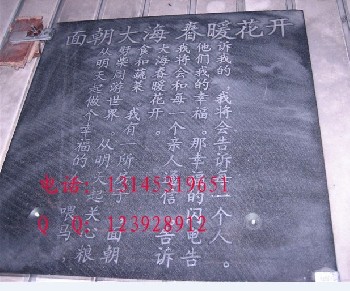 面朝大海春暖花开
从明天起做个幸福的 喂马
劈柴周游世界。从明天起关心粮
食和蔬菜 我有一所 子 面朝
大海春暖花开。
我将会和每一个亲人 信 告诉
他们我的幸福。那幸福的闪电告
诉我的，我将会告诉 一个人。
电话: 13145319651
Q Q: 123928912